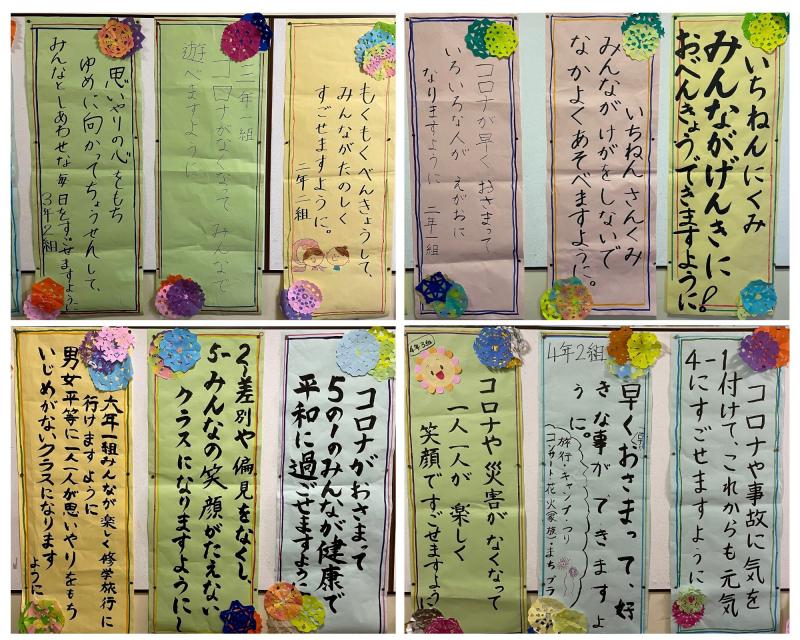 いちねんにくみ
みんながげんきに!
おべんきょうできますように。
いちねん さんくみ
みんながけがをしないで
なかよくあそべますように。
コロナが早く おさまって
いろいろな人が えがおに
なりますように 二年一組
もくもく べんきょうして、
みんながたのしく
すごせますように。
二年二組
三年一組
コロナがなくなって みんなで
遊べますように
思いやりの心をもち
ゆめに向かってちょうせんして、
みんなとしあわせな毎日をすごせますように
3年2組
コロナや事故に気を
付けて、これからも元気
にすごせますように
4-1
4年2組
早くおさまって、好
きな事ができますよ
うに。
旅行・キャンプ・つり
コンサート・花火(家族)・まちブラ
4年3組
コロナや災害がなくなって
一人一人が楽しく
笑顔ですごせますように
コロナがおさまって
5の1のみんなが健康で
平和に過ごせますように
5-2～差別や偏見をなくし、
みんなの笑顔がたえない
クラスになりますように～
六年一組みんなが楽しく修学旅行に
行けますように
男女平等に一人一人が思いやりをもち
いじめがないクラスになります
ように